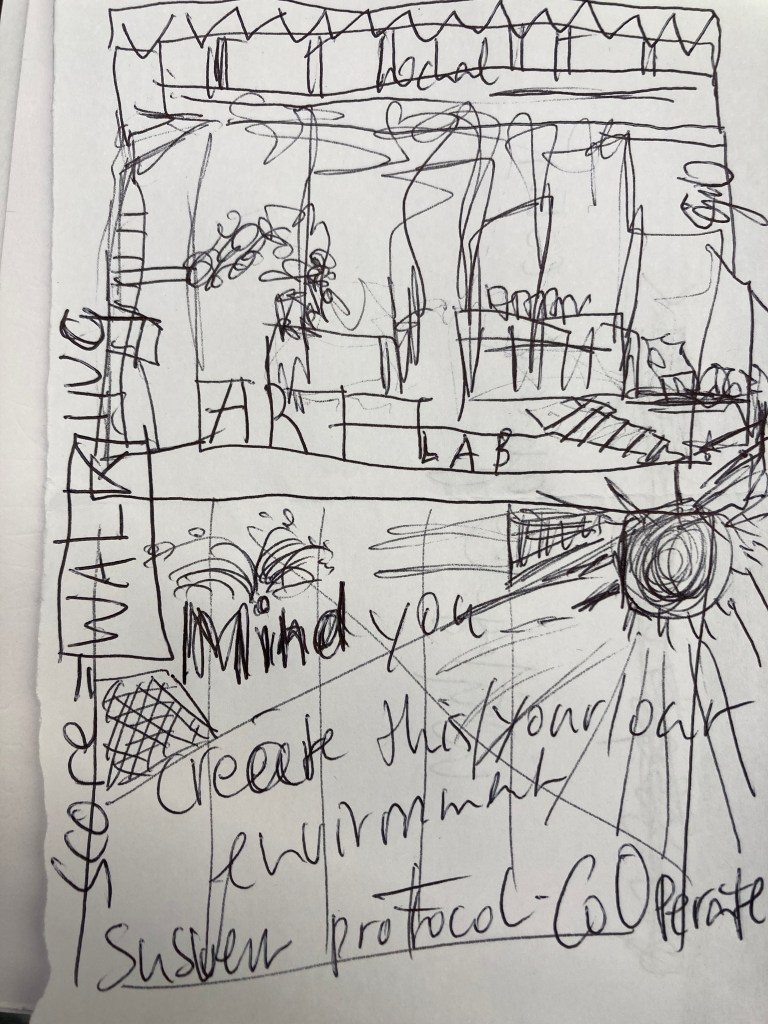 AR
LAB
score = WALKING
Mind you
create this/your/our
environment
protocol - CoOperate